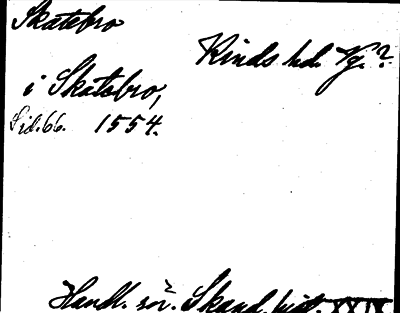 Skatebro
Kinds hd. Vg.?
i Skatebro,
Sid. 66. 1554.
Handl. rör. Skand. hist. XXIX